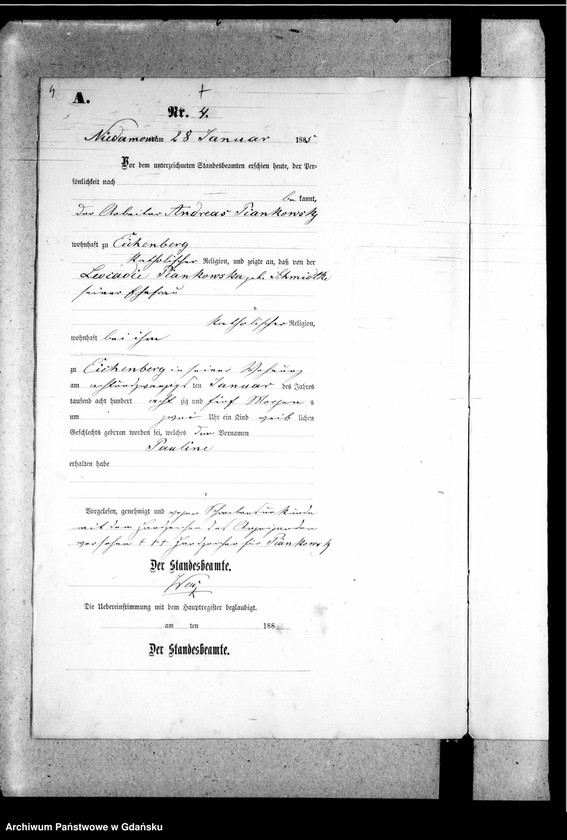 4
A.
Nr. 4.
Niedamowo am 28 Januar 1885
Vor dem unterzeichneten Standesbeamten erschien heute, der Per-
sönlichkeit nach
be kannt,
der Arbeiter Andreas Piankowsky
wohnhaft zu Eichenberg
katholischer Religion, und zeigte an, daß von der
Leocadie Piankowska geb. Schmidtke
seiner Ehefrau
katholischer Religion,
wohnhaft bei ihm
zu Eichenberg in seiner Wohnung
am achtundzwanzigsten Januar des Jahres
tausend acht hundert acht zig und fünf Morgens
um zwei Uhr ein Kind weib lichen
Geschlechts geboren worden sei, welches den Vornamen
Pauline
erhalten habe
Vorgelesen, genehmigt und wegen Schreibensunkunde
mit dem Handzeichen des Anzeigenden
versehen + + + Handzeichen für Piankowsky
Der Standesbeamte.
Die Uebereinstimmung mit dem Hauptregister beglaubigt.
am ten 188
Der Standesbeamte.
Archiwum Państwowe w Gdańsku